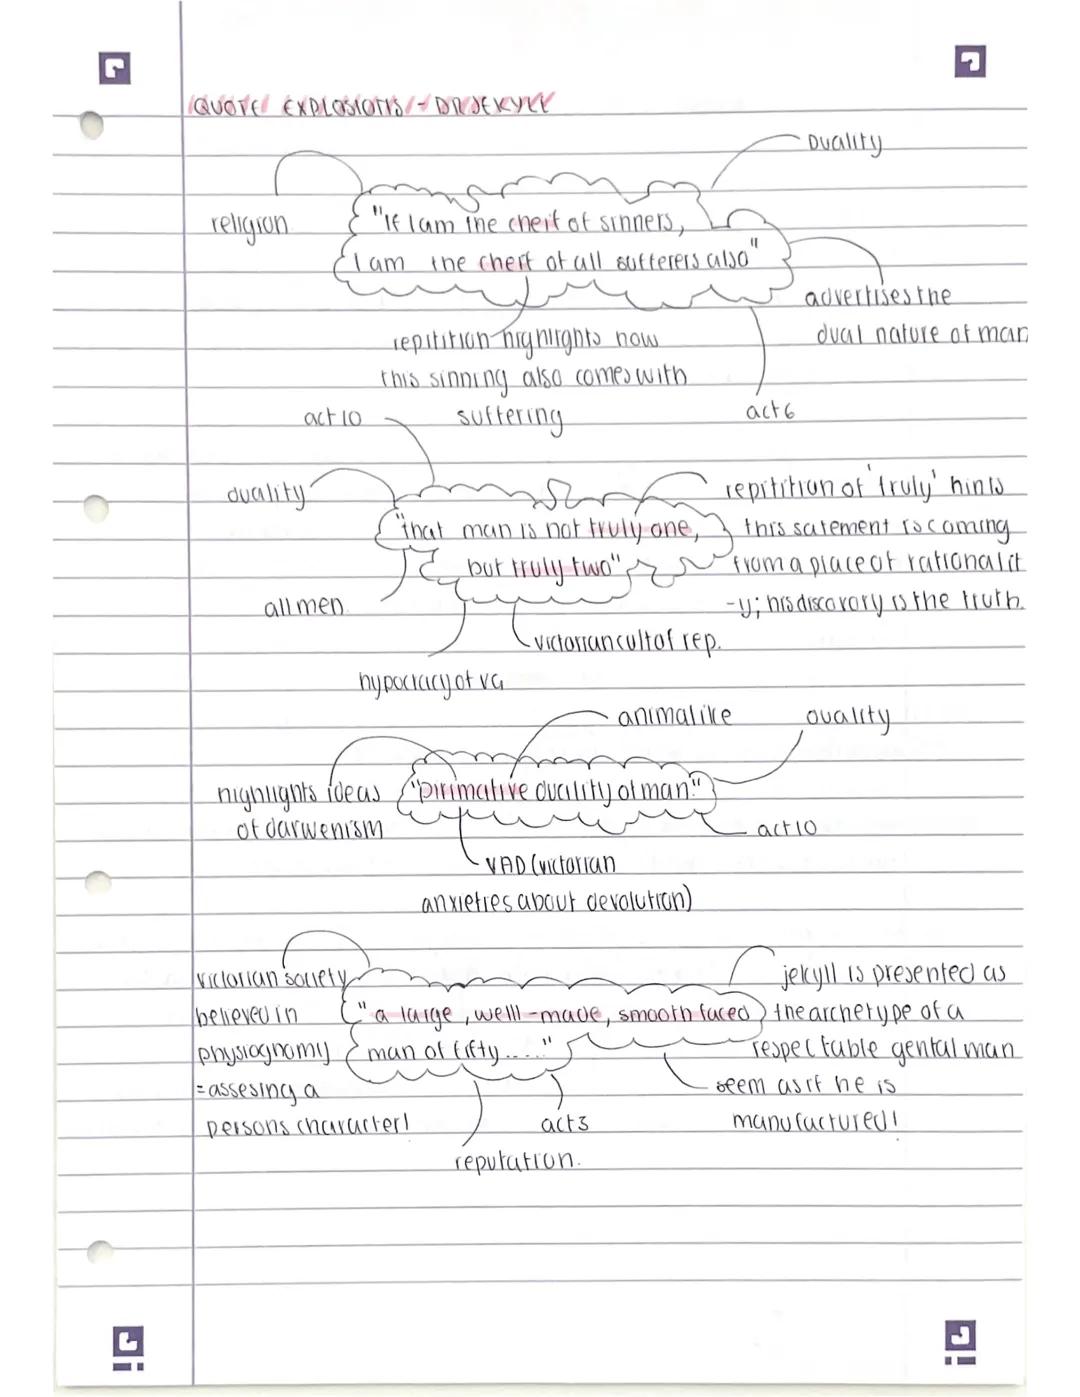 QUOTE EXPLOSIONS - DR JEKYLL
Duality
religion
"If I am the cheif of sinners,
I am the cheif of all sufferers also"
advertises the
dual nature of man
repitition highlights how
this sinning also comes with
suffering
act 6
act 10
duality
"that man is not truly one,
but truly two"
repitition of 'truly' hints
this satement is coming
from a place of rationalit
-y; his discovory is the truth.
all men
victorian cult of rep.
hypocracy of VG
animalike
duality
highlights ideas
of darwenism
"pirimative duality of man."
act 10
VAD (victorian
anxieties about devolution)
victorian society
believed in
physiognomy
= assesing a
persons character!
"a large, welll-made, smooth faced
man of fifty....."
jekyll is presented as
the archetype of a
respectable gental man
seem as if he is
manufactured!
act 3
reputation.